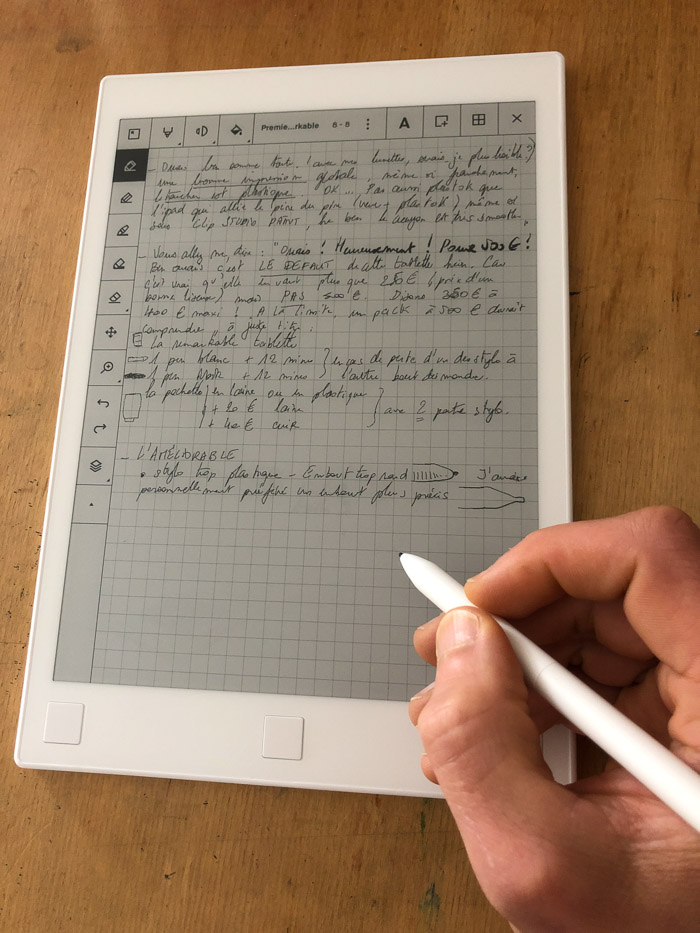 Premie...rkable 8 - 8 A
- Ouais bon comme tout. (avec mes lunettes, ouais, je plus lisible ?)
une bonne impression globale, même si franchement,
le toucher est plastique. OK... Pas aussi plastok que
l'ipad qui allie le pire du pire (verre + plastok) même si
sous CLIP STUDIO PAINT, he ben le crayon est très smooth.
- Vous allez me dire : "Ouais ! Heureusement ! Pour 500 € !
Ben ouais c'est LE DEFAUT de cette tablette hein. Car
c'est vrai qu'elle en vaut plus que 250 € (prix d'un
bonne liseuse) mais PAS 500 €. Disons 350 € à
400 € maxi ! A la limite, un pack à 500 € devrait
comprendre, à juste titre :
La remarkable tablette
1 pen blanc + 12 mines } en cas de perte d'un des stylo à
1 pen black + 12 mines } l'autre bout du monde.
la pochette en laine ou en plastique
+ 20 € laine } avec 2 porte stylo.
+ 40 € cuir
- L'AMÉLIORABLE
• stylo trop plastique - Embout trop rond J'aurais
personnellement préféré un embout plus précis